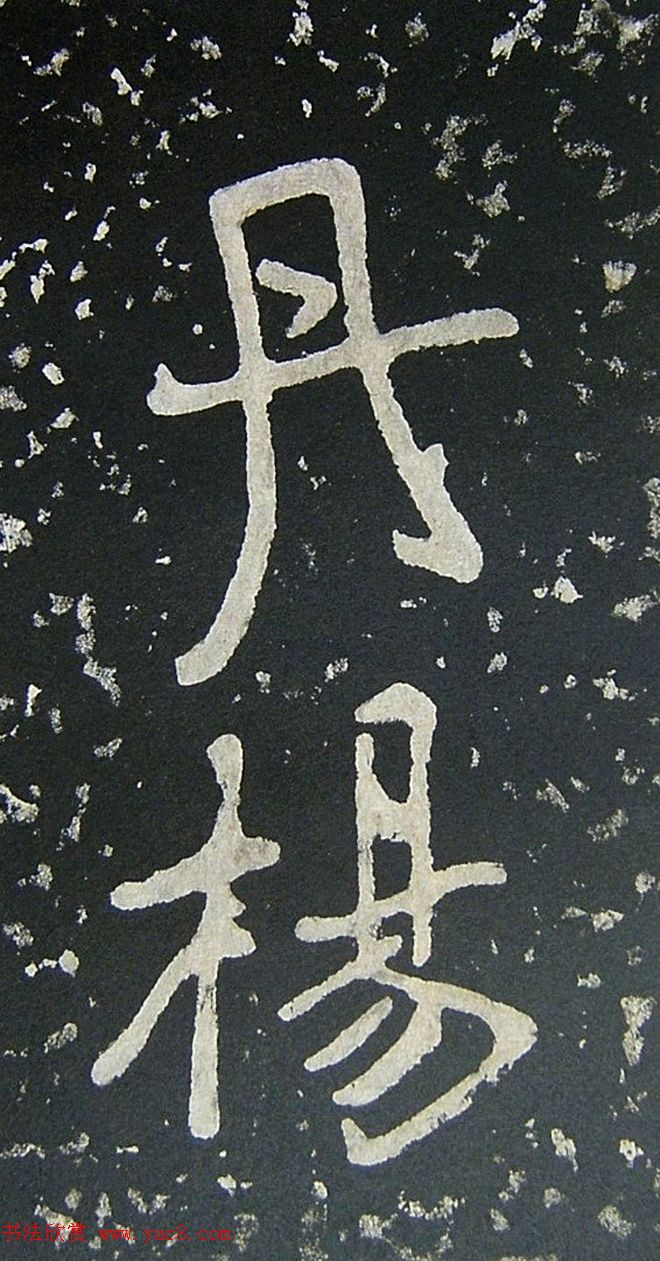 丹
楊
书法欣赏 www.yac8.com